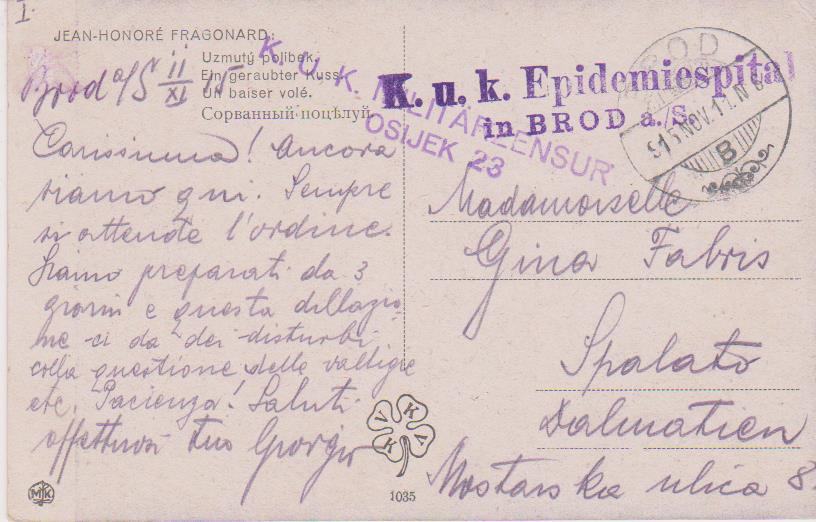 I.
JEAN-HONORÉ FRAGONARD:
Uzmutý polibek.
Ein geraubter Kuss.
Un baiser volé.
Сорванный поцѣлуй.
Brod a/S II/XI 15
Carissima! Ancora
siamo qui. Sempre
si attende l'ordine.
Siamo preparati da 3
giorni e questa dillazio-
ne ci dà dei disturbi
colla questione delle valligie
etc. Pacienza! Saluti
affettuosi tuo Giorgio
K. U. K. MILITÄRZENSUR
OSIJEK 23
K. u. k. Epidemiespital
in BROD a. S.
BROD
915 NOV. 11. N 6
B
Madamoiselle
Gina Fabris
Spalato
Dalmatien
Mostarska ulica 8.
V K V K
MK
1035